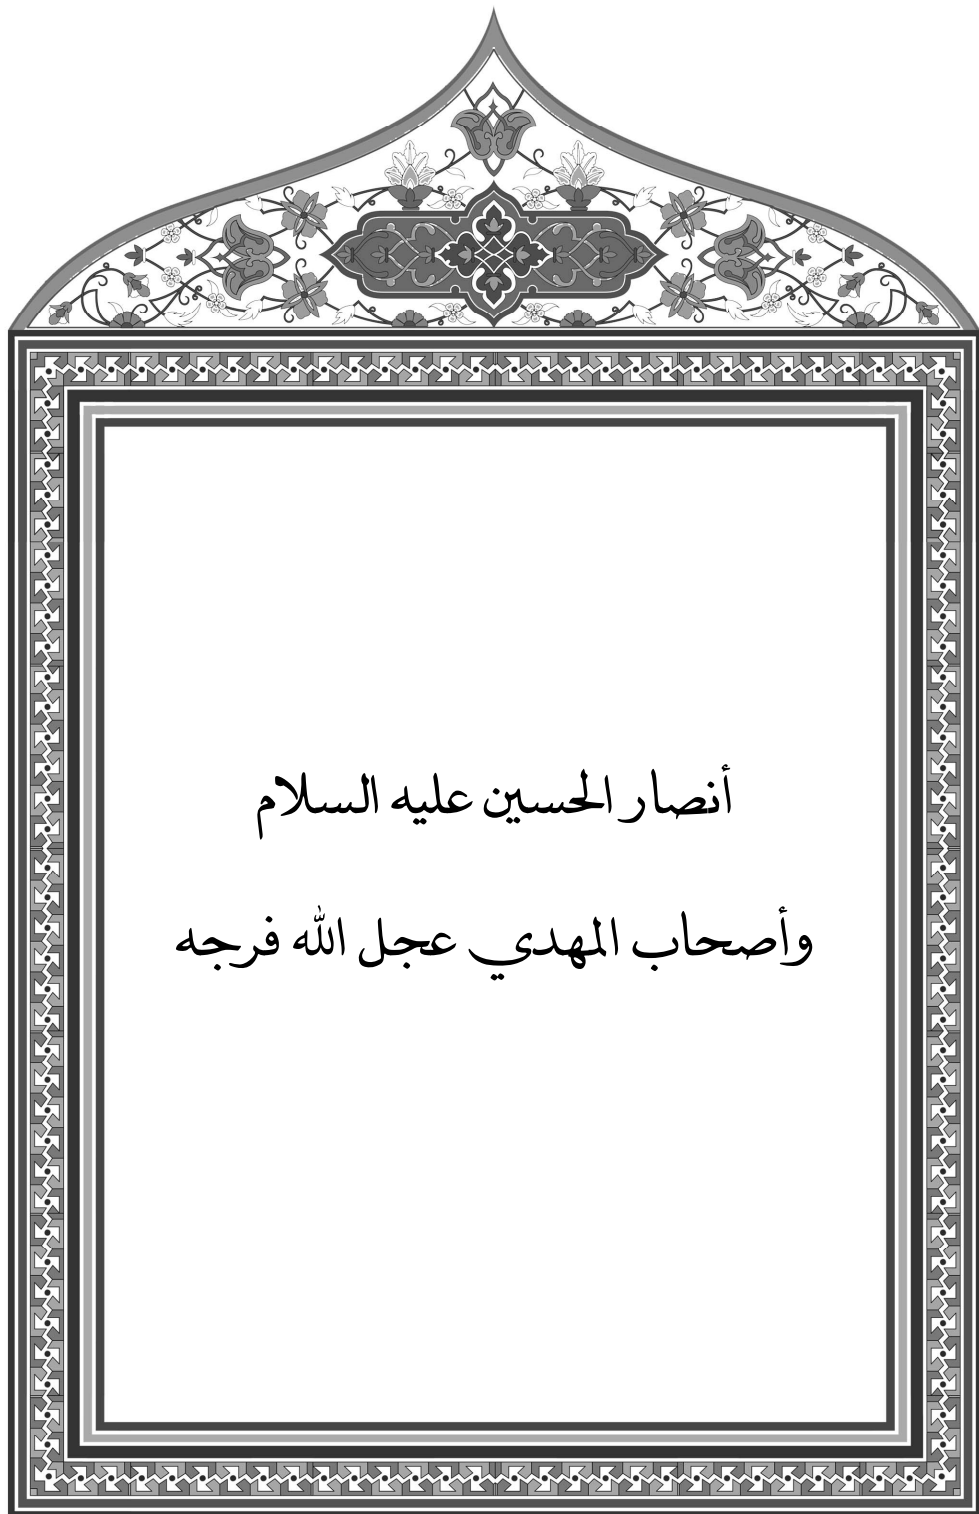 أنصار الحسين عليه السلام
وأصحاب المهدي عجل الله فرجه